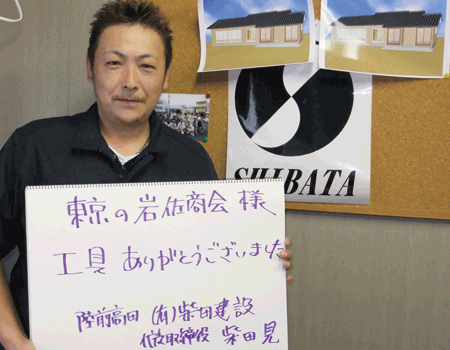 SHIBATA
東京の岩佐商会 様
工具 ありがとうございました
陸前高田 (有)柴田建設
代表取締役 柴田見